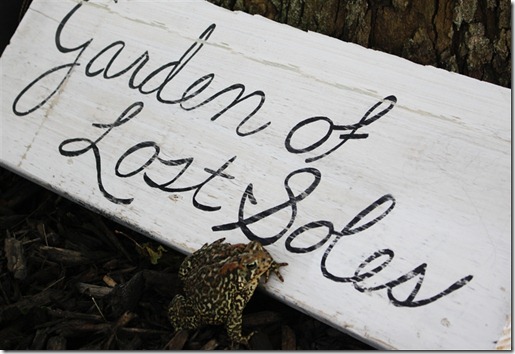 Garden of
Lost Soles